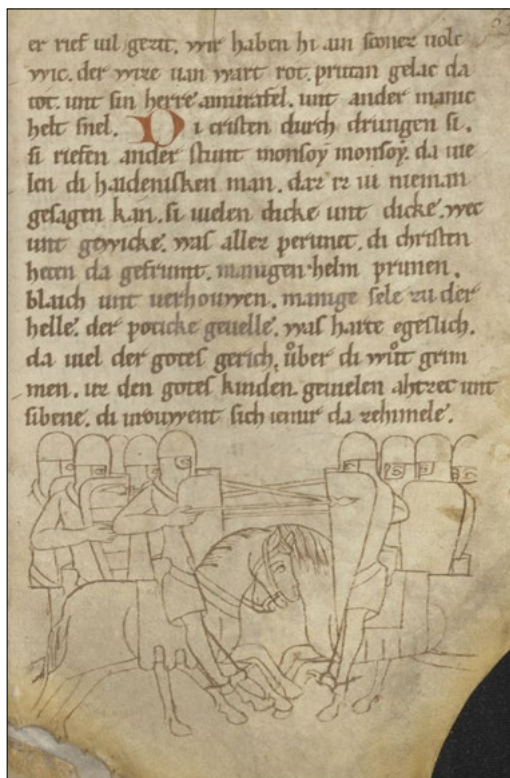 er rief uil. wir haben hi ain sconez uolc
wic. der wize uan wart rot. prutan gelac da
tot. unt sin herre amurafel. unt ander manic
helt snel. Di cristen durch drungen si.
si riefen ander stunt monsoẏ monsoẏ. da uie
len di haidenisken man. daz iz iu nieman
gesagen kan. si uielen dicke unt dicke. wec
unt gewicke. was allez perunet. di christen
heten da gefrumt. manigen helm prunen.
blaich unt uerhouwen. manige sele zu der
helle. der poticke geuelle. was harte egeslich.
da uiel der gotes gerich. uͦber di wuͦt grim
men. uz den gotes kinden. geuielen ahtzec unt
sibene. di urouwent sich iemir da zehimele.